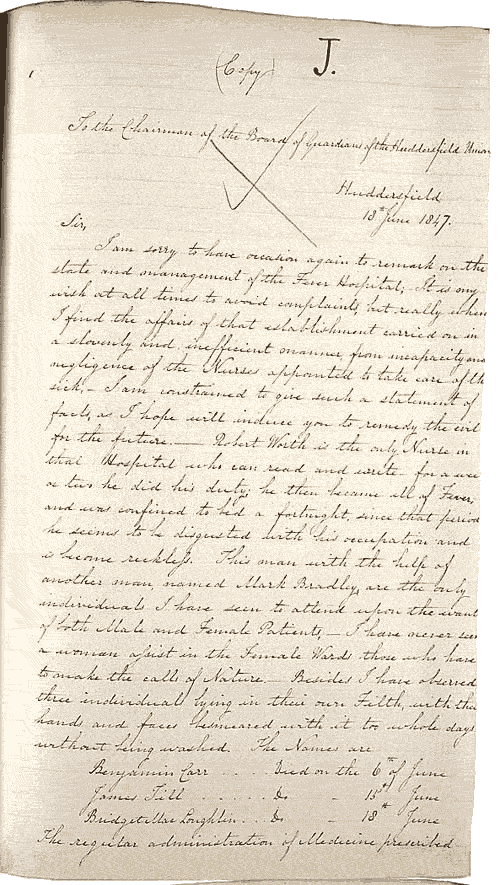 (Copy)
J.
To the Chairman of the Board of Guardians of the Huddersfield Union
Huddersfield
18th June 1847.
Sir,
I am sorry to have occasion again to remark on the
state and management of the Fever Hospital; It is my
wish at all times to avoid complaints, but really when
I find the affairs of that establishment carried on in
a slovenly and inefficient manner, from incapacity and
negligence of the Nurses appointed to take care of the
sick, – I am constrained to give such a statement of
facts, as I hope will induce you to remedy the evil
for the future. — Robert Worth is the only Nurse in
that Hospital who can read and write for a wee
or two he did his duty; he then became ill of Fever,
and was confined to bed a fortnight, since that period
he seems to be disgusted with his occupation and
is become reckless. This man with the help of
another man, named Mark Bradley, are the only
individuals I have seen to attend upon the want
of both Male and Female Patients, – I have never see
a woman assist in the Female Wards those who have
to make the calls of Nature. – Besides I have observed
three individuals lying in their own Filth, with their
hands and faces besmeared with it two whole days
without being washed. The Names are
Benjamin Carr . . . . Died on the 6th of June
James Till . . . . . . Do – 15th June
Bridget Mac Loughlin . . Do – 18th June
The regular administration of Medicine prescribed